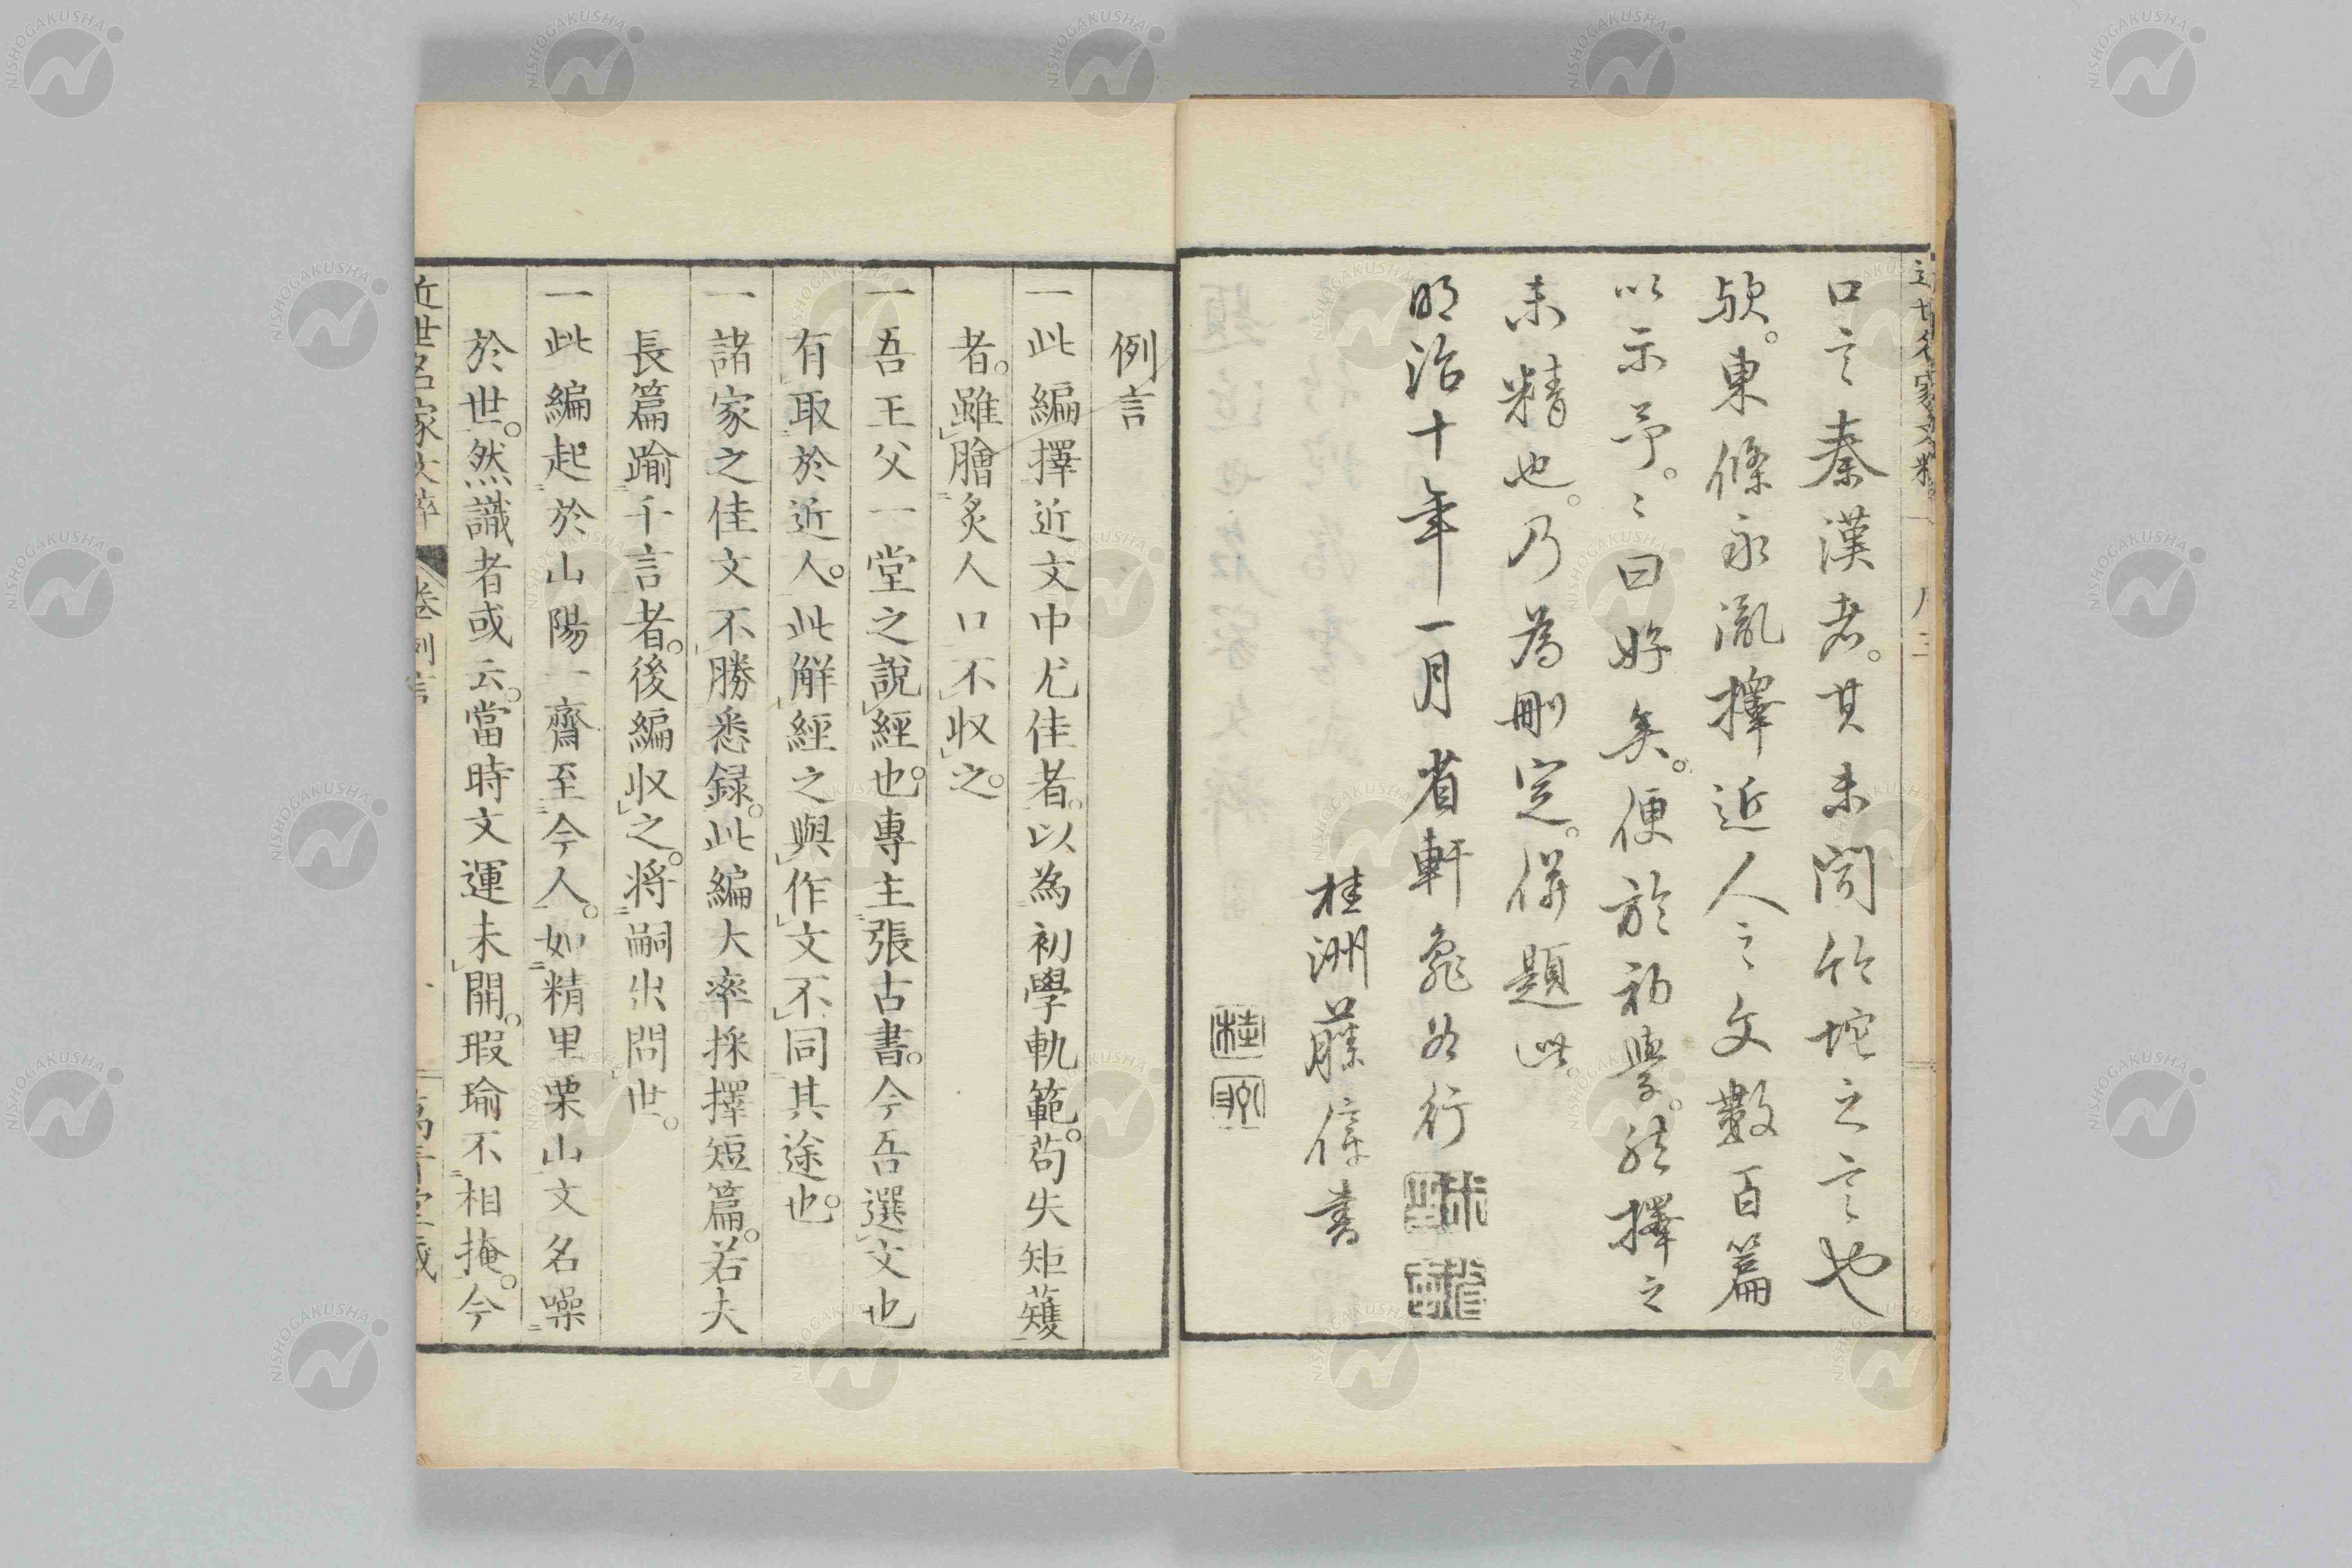 口之秦漢者。其未聞竹垞之言也
歟。東條永胤擇近人之文數百篇
以示予。〻曰好矣。便於初學。然擇之
未精也。乃為刪定。併題此。
明治十年一月 省軒龜谷行
桂洲藤 書
例言
一此編擇近文中尤佳者。以為初學軌範。苟失矩矱
者。雖膾炙人口不收之。
一吾王父一堂之說經也。專主張古書。今吾選文也
有取於近人。此解經之與作文不同其途也。
一諸家之佳文不勝悉録。此編大率採擇短篇。若夫
長篇踰千言者。後編收之。將嗣出問世。
一此編起於山陽一齋至今人。如精里栗山文名噪
於世。然識者或云。當時文運未開。瑕瑜不相掩。今
近世名家文粹 卷 例言
NISHOGAKUSHA